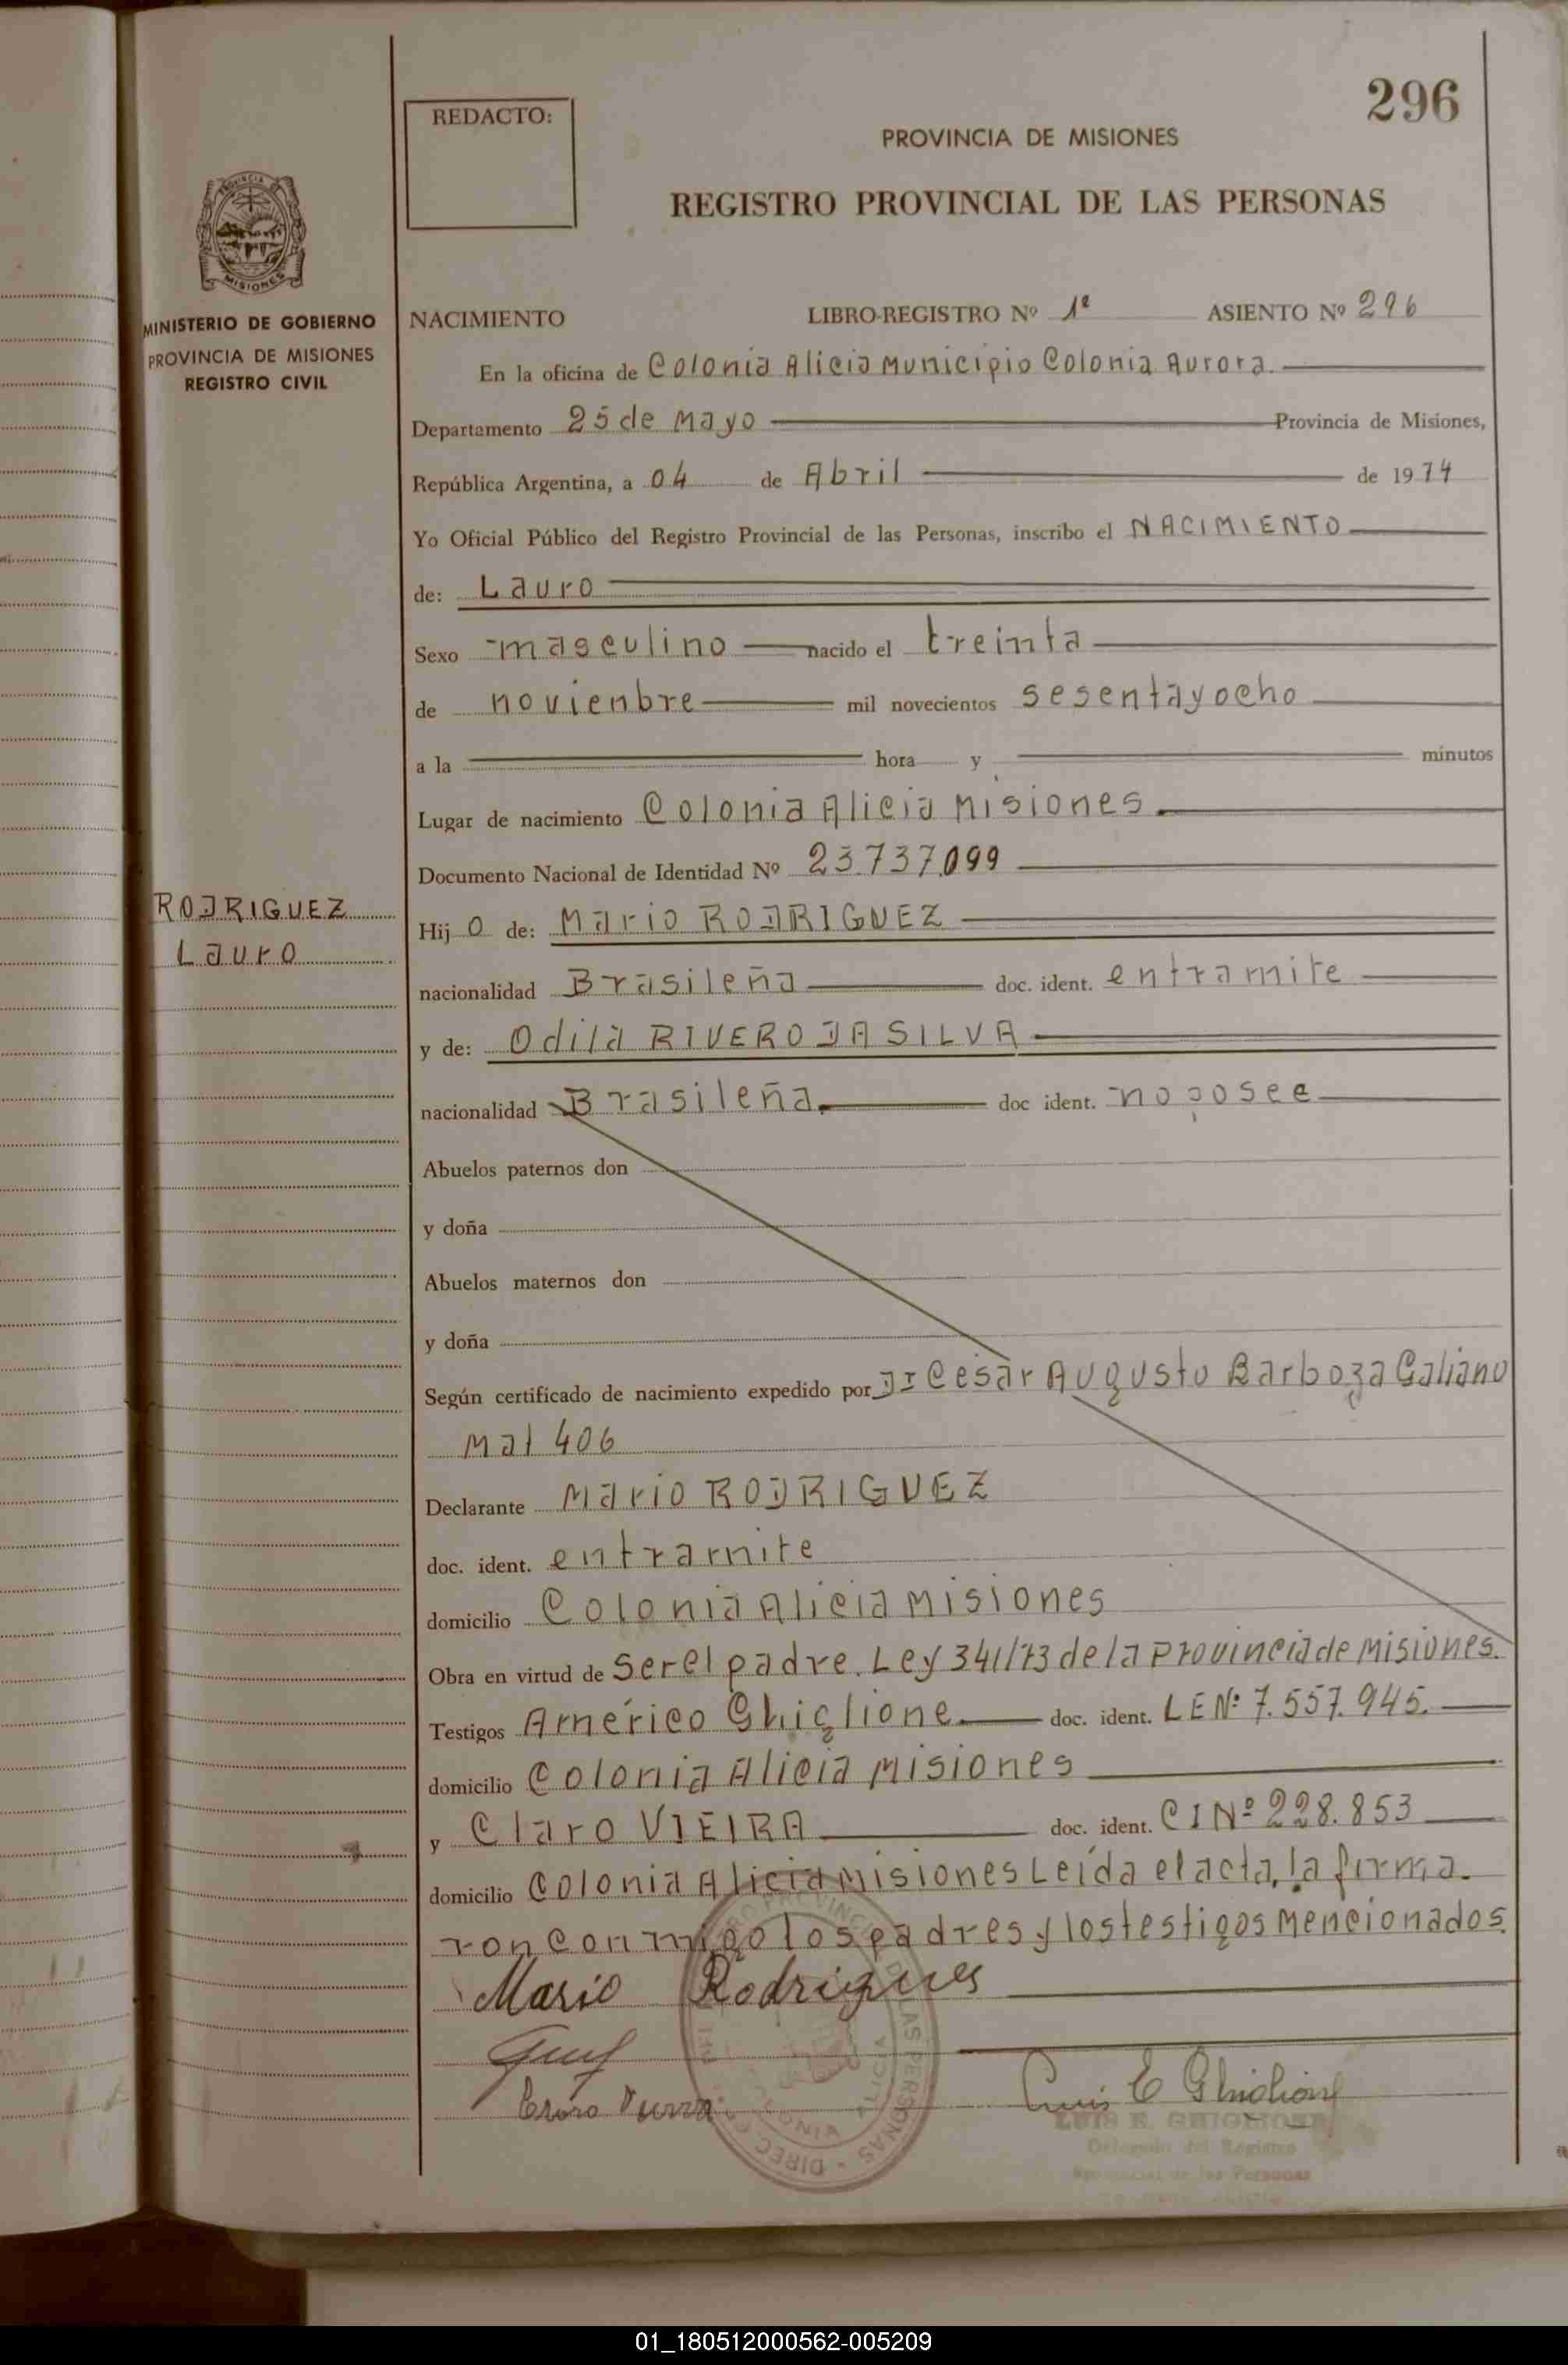 296
REDACTO:
PROVINCIA DE MISIONES
REGISTRO PROVINCIAL DE LAS PERSONAS
MISIONES
MINISTERIO DE GOBIERNO
PROVINCIA DE MISIONES
REGISTRO CIVIL
NACIMIENTO LIBRO-REGISTRO Nº 1º ASIENTO Nº 296
En la oficina de Colonia Alicia Municipio Colonia Aurora.
Departamento 25 de Mayo Provincia de Misiones,
República Argentina, a 04 de Abril de 1974
Yo Oficial Público del Registro Provincial de las Personas, inscribo el NACIMIENTO
de: Lauro
Sexo masculino nacido el treinta
de novienbre mil novecientos sesentayocho
a la hora y minutos
Lugar de nacimiento Colonia Alicia Misiones.
Documento Nacional de Identidad Nº 23.737.099
RODRIGUEZ
Lauro
Hij o de: Mario RODRIGUEZ
nacionalidad Brasileña doc. ident. entramite
y de: Odila RIVERO DA SILVA
nacionalidad Brasileña. doc ident. no posee
Abuelos paternos don
y doña
Abuelos maternos don
y doña
Según certificado de nacimiento expedido por Dr Cesar Augusto Barboza Galiano
Mat 406
Declarante Mario RODRIGUEZ
doc. ident. entramite
domicilio Colonia Alicia Misiones
Obra en virtud de Ser el padre. Ley 341/73 de la Provincia de Misiones.
Testigos Américo Ghiglione. doc. ident. LE Nº 7.557.945.
domicilio Colonia Alicia Misiones
y Claro VIEIRA doc. ident. CI Nº 228.853
domicilio Colonia Alicia Misiones Leída el acta, la firma-
ron conmigo los padres y los testigos Mencionados.
Mario Rodrigues
Luis E Ghiglione
LUIS E. GHIGLIONE
Delegado del Registro
Provincial de las Personas
01_180512000562-005209